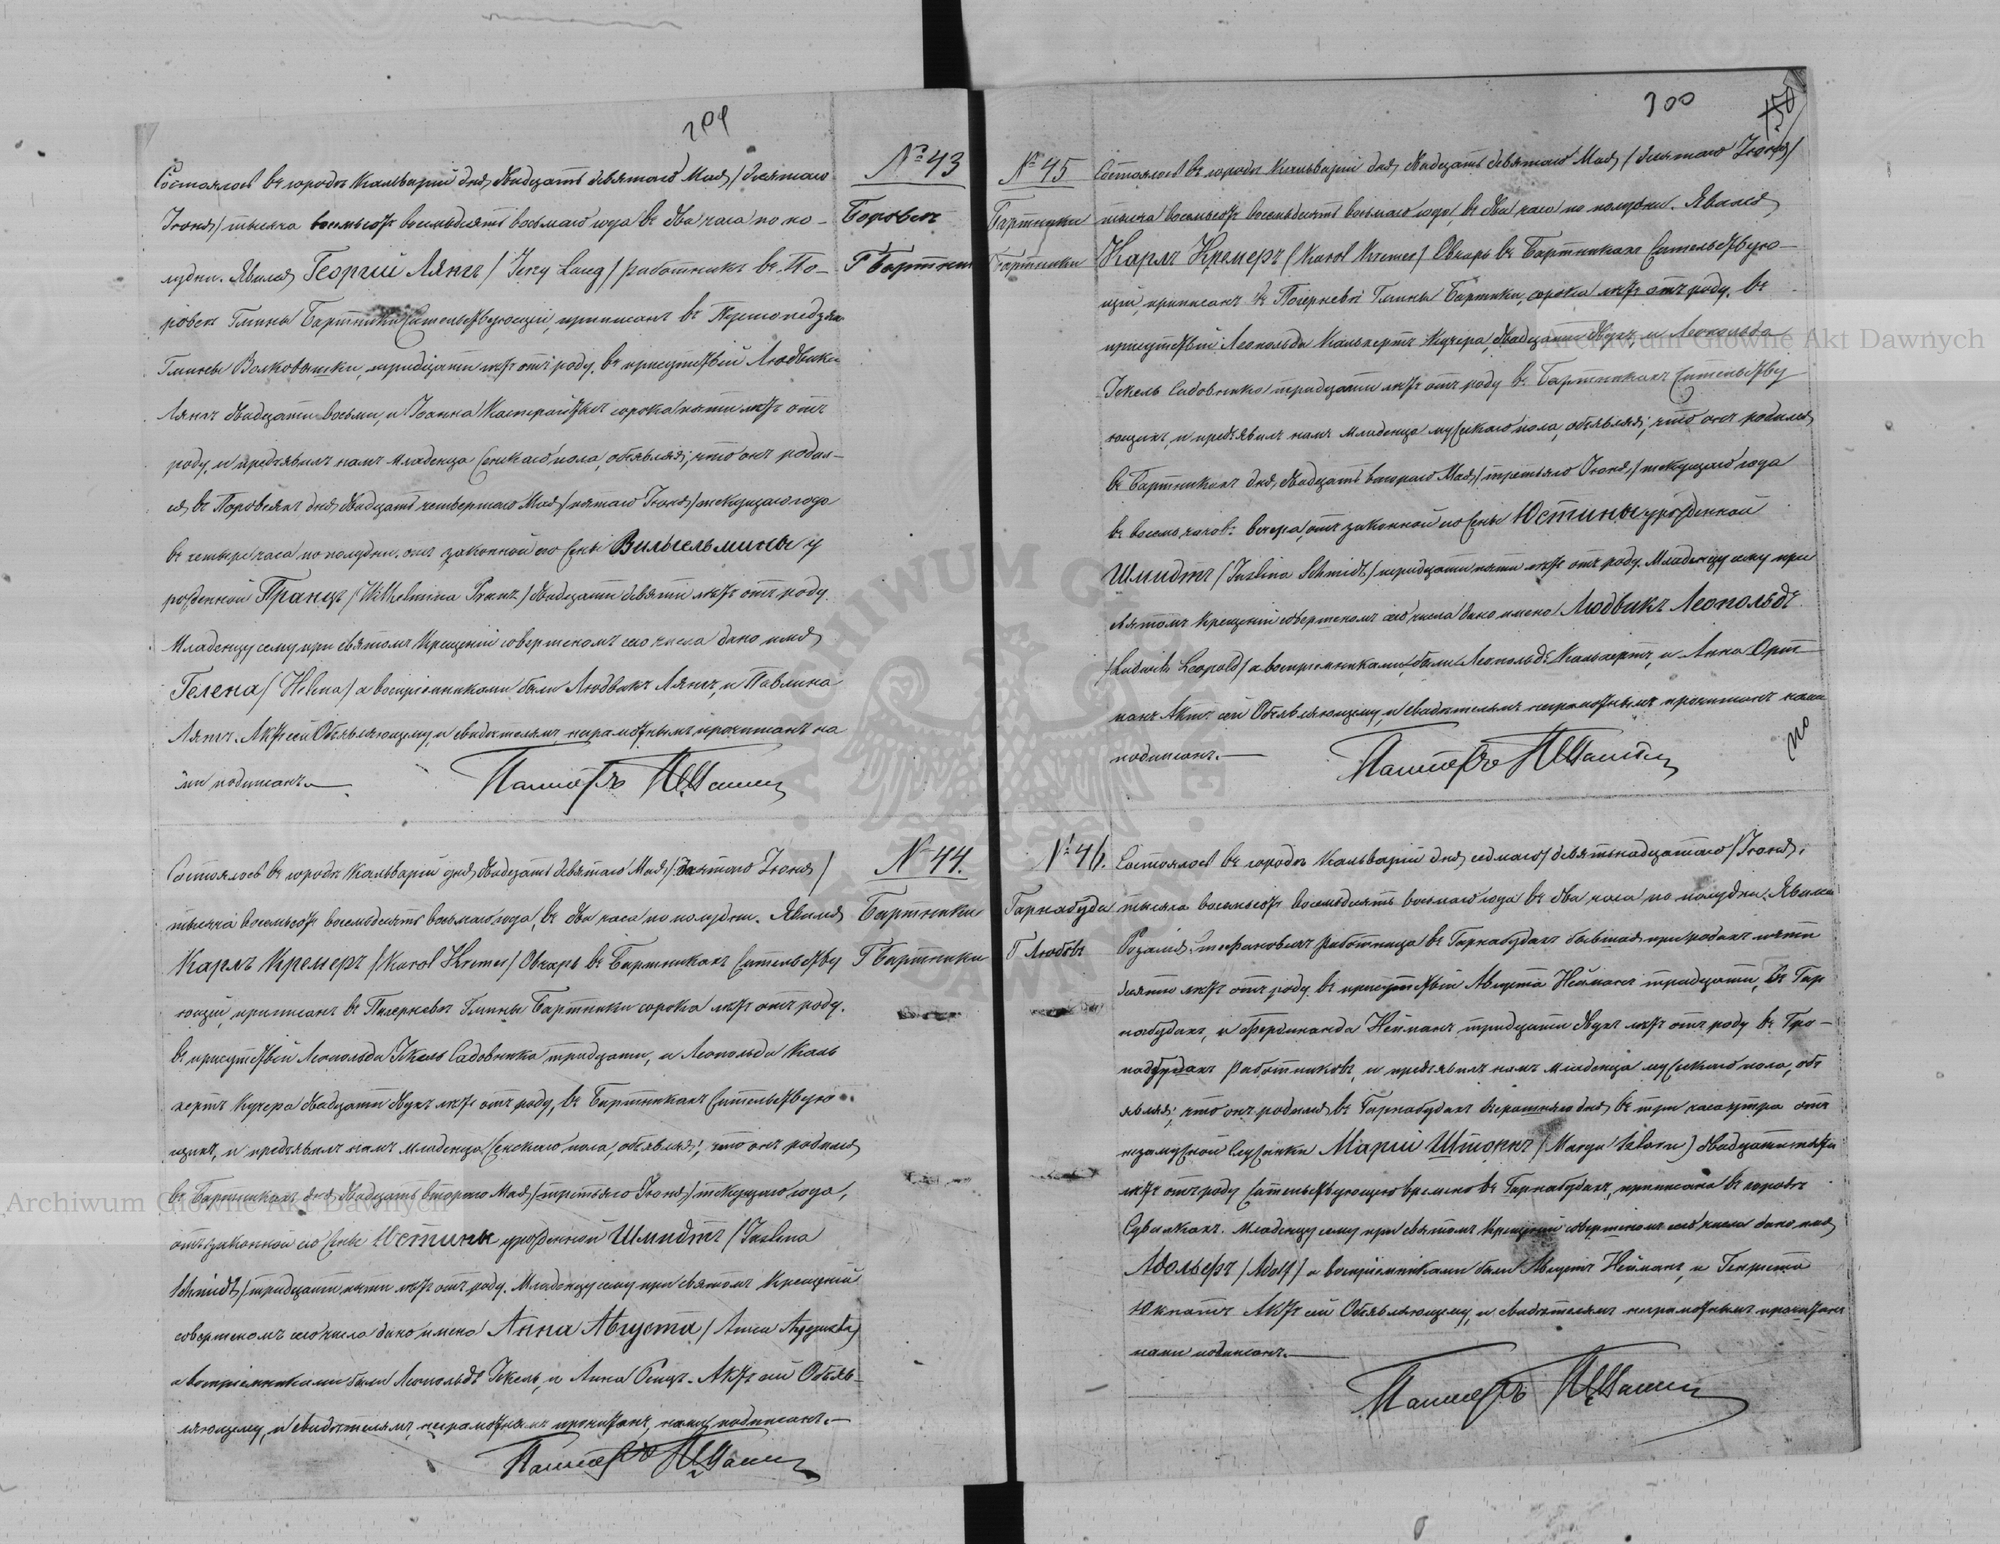 299
№ 43
Боровск
Г Бартники
Состоялось въ городѣ Кальваріи дня двадцать девятаго Мая /десятаго
Іюня/ тысяча восемьсотъ восемьдесятъ восьмаго года въ два часа по по-
лудни. Явился Георгій Лянгъ /Jerzy Lang/ работникъ въ По-
ровск Гмины Бартники жительствующій, приписанъ въ
Гмины Волковышки, тридцати лѣтъ отъ роду, въ присутствіи Людвика
Лянгъ двадцати восьми, и Іоанна сорока пяти лѣтъ отъ
роду, и предъявилъ намъ младенца женскаго пола, объявляя, что онъ родил-
ся въ дня двадцать четвертаго Мая /пятаго Іюня/ текущаго года
въ четыре часа по полудни, отъ законной его жены Вильгельмины у
рожденной Пранцъ /Wilhelmina Pranz/ двадцати девяти лѣтъ отъ роду.
Младенцу сему при святомъ Крещеніи совершеномъ сего числа дано имя
Гелена /Helena/ а воспріемниками были Людвикъ Лянгъ, и Павлина
Лянгъ. Актъ сей Объявляющему, и свидѣтелямъ неграмотнымъ прочитанъ на
ми подписанъ.—
Пасторъ
№ 44.
Бартники
Г Бартники
Состоялось въ городѣ Кальваріи дня двадцать девятаго Мая /десятаго Іюня/
тысяча восемьсотъ восемьдесятъ восьмаго года, въ два часа по полудни. Явился
Карлъ Кремеръ /Karol Kremer/ Овчарь въ Бартникахъ жительству
ющій, приписанъ въ Гмины Бартники сорока лѣтъ отъ роду.
въ присутствіи Леопольда Іекель Садовника тридцати, и Леопольда Каль
хертъ Кучера двадцати двухъ лѣтъ отъ роду, въ Бартникахъ жительствую
щихъ, и предъявилъ намъ младенца женскаго пола, объявляя, что онъ родился
въ Бартникахъ дня двадцать втораго Мая /третьяго Іюня/ текущаго года,
отъ законной его жены Юстины урожденной Шмидтъ /Justina
Schmidt/ тридцати пяти лѣтъ отъ роду. Младенцу сему при святомъ Крещеніи
совершеномъ сего числа дано имена Анна Августа /Anna Augusta/
а воспріемниками были Леопольдъ Іекель, и Анна. Актъ сей Объяв-
ляющему, и свидѣтелямъ неграмотнымъ прочитанъ, нами подписанъ.—
Пасторъ
300
150
№ 45
Бартники
Бартники
Состоялось въ городѣ Кальваріи дня двадцать девятаго Мая /десятаго Іюня/
тысяча восемьсотъ восемьдесятъ восьмаго года, въ два часа по полудни. Явился
Карлъ Кремеръ /Karol Kremer/ Овчарь въ Бартникахъ жительствую-
щій, приписанъ въ Гмины Бартники, сорока лѣтъ отъ роду. въ
присутствіи Леопольда Кальхертъ Кучера, двадцати двухъ, и Леопольда
Іекель Садовника тридцати лѣтъ отъ роду въ Бартникахъ жительству
ющихъ, и предъявилъ намъ младенца мужскаго пола, объявляя, что онъ родился
въ Бартникахъ дня, двадцать втораго Мая /третьяго Іюня/ текущаго года
въ восемь часовъ вечера, отъ законной его жены Юстины урожденной
Шмидтъ /Justina Schmidt/ тридцати пяти лѣтъ отъ роду. Младенцу сему при
святомъ Крещеніи совершеномъ сего числа дано имена Людвикъ Леопольдъ
/Ludwik Leopold/ а воспріемниками были Леопольдъ Кальхертъ, и Анна Орт-
манъ. Актъ сей Объявляющему, и свидѣтелямъ неграмотнымъ прочитанъ нами
подписанъ.—
Пасторъ
№ 46.
Гарнабуды
Г Любовъ
Состоялось въ городѣ Кальваріи дня седмаго /девятнадцатаго/ Іюня,
тысяча восемьсотъ восемьдесятъ восьмаго года въ два часа по полудни. Явилась
Розалія работница въ Гарнабудахъ бывшая при родахъ пяти
десяти лѣтъ отъ роду. въ присутствіи Августа Нейманъ тридцати, въ Гар
набудахъ, и Фердинанда Нейманъ тридцати двухъ лѣтъ отъ роду въ Гар-
набудахъ работниковъ, и предъявила намъ младенца мужскаго пола, объ
являя, что онъ родился въ Гарнабудахъ вчерашняго дня въ три часа утра отъ
незамужной Служанки Маріи двадцати пяти
лѣтъ отъ роду жительствующею временно въ Гарнабудахъ, приписана въ городѣ
Сувалкахъ. Младенцу сему при святомъ Крещеніи совершеномъ сего числа дано имя
Адольфъ /Adolf/ а воспріемниками были Августъ Нейманъ, и Генріета
Юкнатъ Актъ сей Объявляющему, и свидѣтелямъ неграмотнымъ прочитанъ
нами подписанъ.—
Пасторъ
Archiwum Główne Akt Dawnych
Archiwum Główne Akt Dawnych